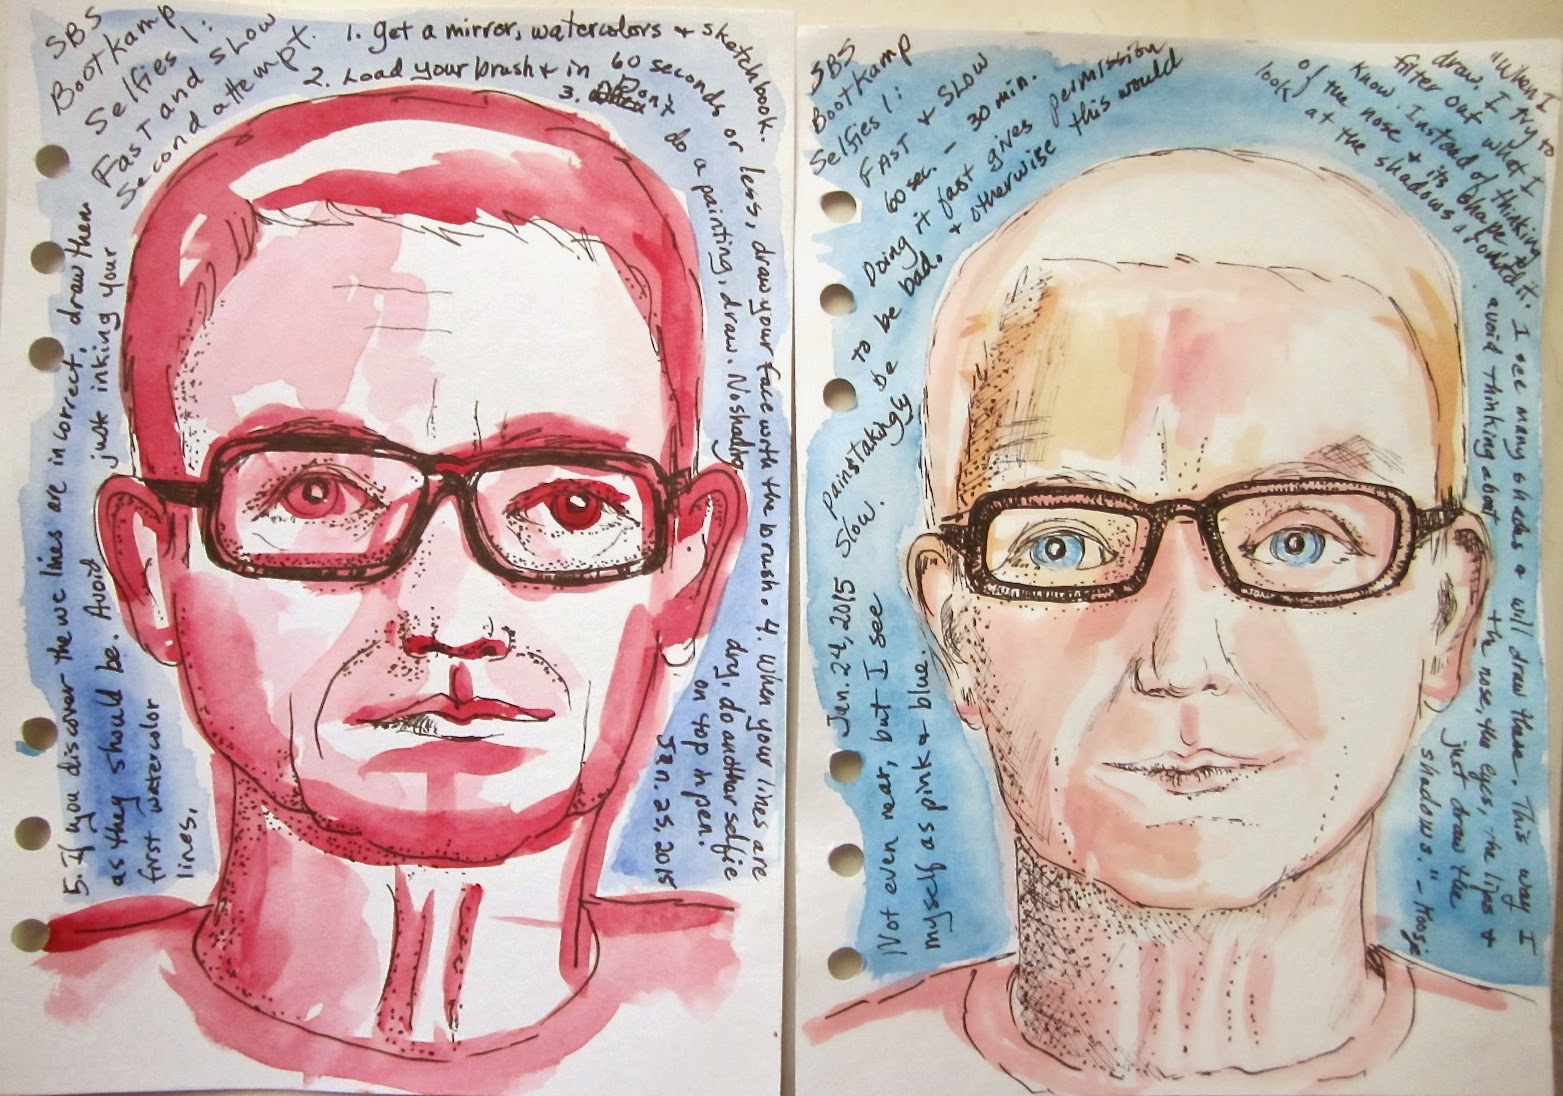 SBS
Bootkamp
Selfies 1:
Fast and slow
Second attempt.
1. Get a mirror, watercolors + sketchbook.
2. Load your brush + in 60 seconds or less, draw your face with the brush. 4. When your lines are
3. Don't do a painting, draw. No shading
dry, do another selfie
on top in pen.
Jan. 25, 2015
5. If you discover the wc lines are incorrect, draw them
as they should be. Avoid just inking your
first watercolor
lines.
SBS
Bootkamp
Selfies 1:
Fast & Slow
60 sec. - 30 min.
Doing it fast gives permission
to be bad. + otherwise this would
be
painstakingly
slow.
Jan. 24, 2015
Not even near, but I see
myself as pink & blue.
"When I
draw, I try to
filter out what I
know. Instead of thinking
of the nose & its shape, I
look at the shadows around it. I see many shades & will draw these. This way I
avoid thinking about the nose, the eyes, the lips &
just draw the
shadows." - Koosje